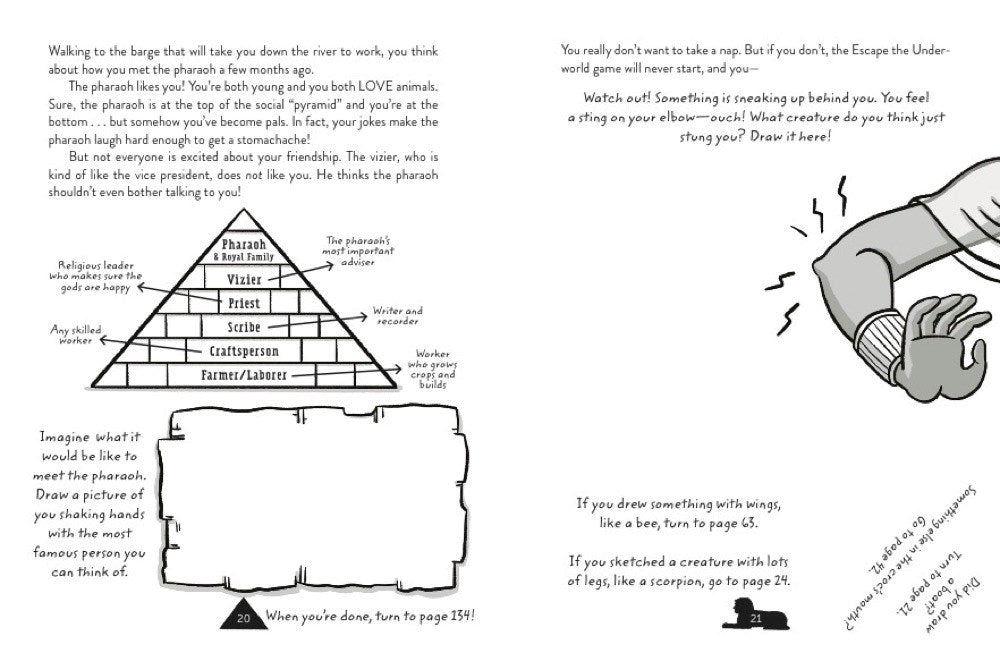 Walking to the barge that will take you down the river to work, you think
about how you met the pharaoh a few months ago.
The pharaoh likes you! You're both young and you both LOVE animals.
Sure, the pharaoh is at the top of the social “pyramid” and you're at the
bottom . . . but somehow you've become pals. In fact, your jokes make the
pharaoh laugh hard enough to get a stomachache!
But not everyone is excited about your friendship. The vizier, who is
kind of like the vice president, does not like you. He thinks the pharaoh
shouldn't even bother talking to you!
Pharaoh
& Royal Family
The pharaoh's
most important
adviser
Vizier
Religious leader
who makes sure the
gods are happy
Priest
Writer and
recorder
Scribe
Any skilled
worker
Craftsperson
Worker
who grows
crops and
builds
Farmer/Laborer
Imagine what it
would be like to
meet the pharaoh.
Draw a picture of
you shaking hands
with the most
famous person you
can think of.
20
When you're done, turn to page 134!
You really don't want to take a nap. But if you don't, the Escape the Under-
world game will never start, and you—
Watch out! Something is sneaking up behind you. You feel
a sting on your elbow—ouch! What creature do you think just
stung you? Draw it here!
If you drew something with wings,
like a bee, turn to page 63.
If you sketched a creature with lots
of legs, like a scorpion, go to page 24.
21
Did you draw
a boat?
Turn to page 21.
Something else in the croc's mouth?
Go to page 42.